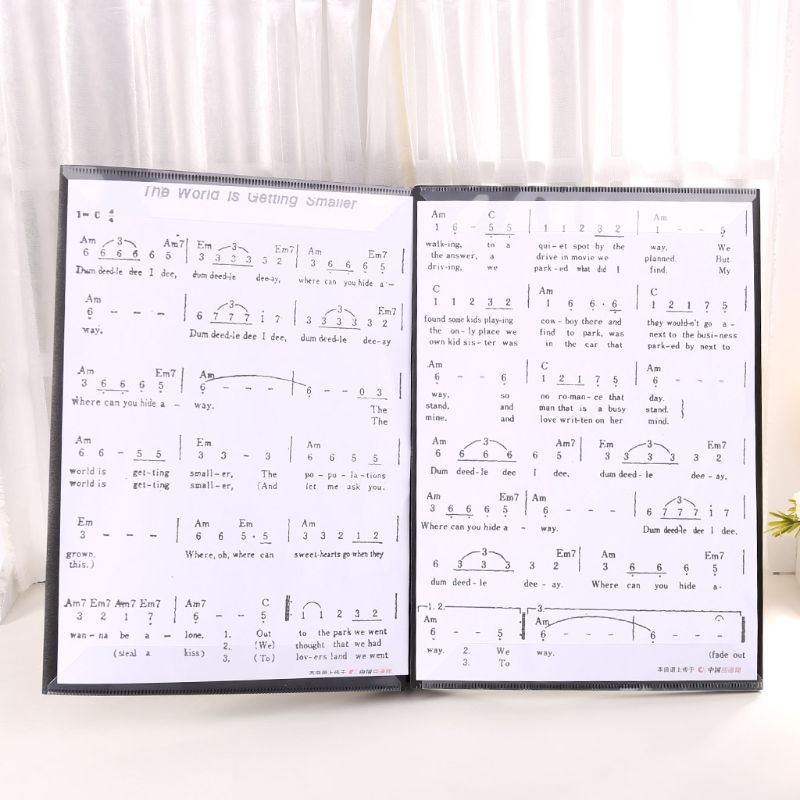 The World Is Getting Smaller
1= C 4/4
Am Am7 Em Em7 Am Em7
6 6 6 6 6 5 3 3 3 3 3 2 3 6 6 6 5
Dum deed-le dee I dee, dum deed-le dee-ay, where can you hide a-
Am Em7
6 - - - 6 7 7 7 1 7 3 3 3 3 3 2
way. Dum deed-le dee I dee, dum deed-le dee-ay
Am Em7 Am
3 6 6 6 5 6 - - - 6 - - 0 3
Where can you hide a - way. The
The
Am Em Am
6 6 - 5 5 3 3 - 3 6 6 5 5
world is get-ting small-er, The po-pu-la-tions
world is get-ting small-er, (And let me ask you.
Em Am Em Am
3 - - - 6 6 5 . 5 3 3 2 1 2
grown. Where, oh, where can sweet-hearts go when they
this.)
Am7 Em7 Am7 Em7 Am7 C
3 2 6 5 6 - - 5 1 1 2 3 2
wan-na be a - lone. 1. Out to the park we went
(steal a kiss) 2. (We) thought that we had
3. (To) lov-ers land we went
本曲谱上传于 中国曲谱网
Am C Am
1 6 - 5 5 1 1 2 3 2 1 - - 5
walk-ing, to a qui-et spot by the way. We
the answer, a drive in movie we planned. But
driv-ing, we park-ed what did I find. My
C Am C
1 1 2 3 2 1 6 6 . 6 1 2 1 7 5
found some kids play-ing cow-boy there and they would-n't go a -
the on-ly place we find to park, was next to the busi-ness
own kid sis-ter was in the car that park-ed by next to
Am C Am
6 - - 6 1 2 1 7 5 6 - - -
way, so no ro-mance that day.
stand, and man that is a busy stand.
mine. and love writ-ten on her mind.
Am Am7 Em Em7
6 6 6 6 6 5 3 3 3 3 3 2
Dum deed-le dee I dee. dum deed-le dee-ay.
Am Em7 Am
3 6 6 6 5 6 - - - 6 7 7 7 1 7
Where can you hide a - way. Dum deed-le dee I dee.
Em7 Am Em7
6 3 3 3 3 2 3 6 6 6 5
dum deed-le dee - ay. Where can you hide a-
1. 2 3.
Am Am
6 - - 5 6 - - - 6 - - -
way. 2. We way. (fade out
3. To
本曲谱上传于 中国曲谱网